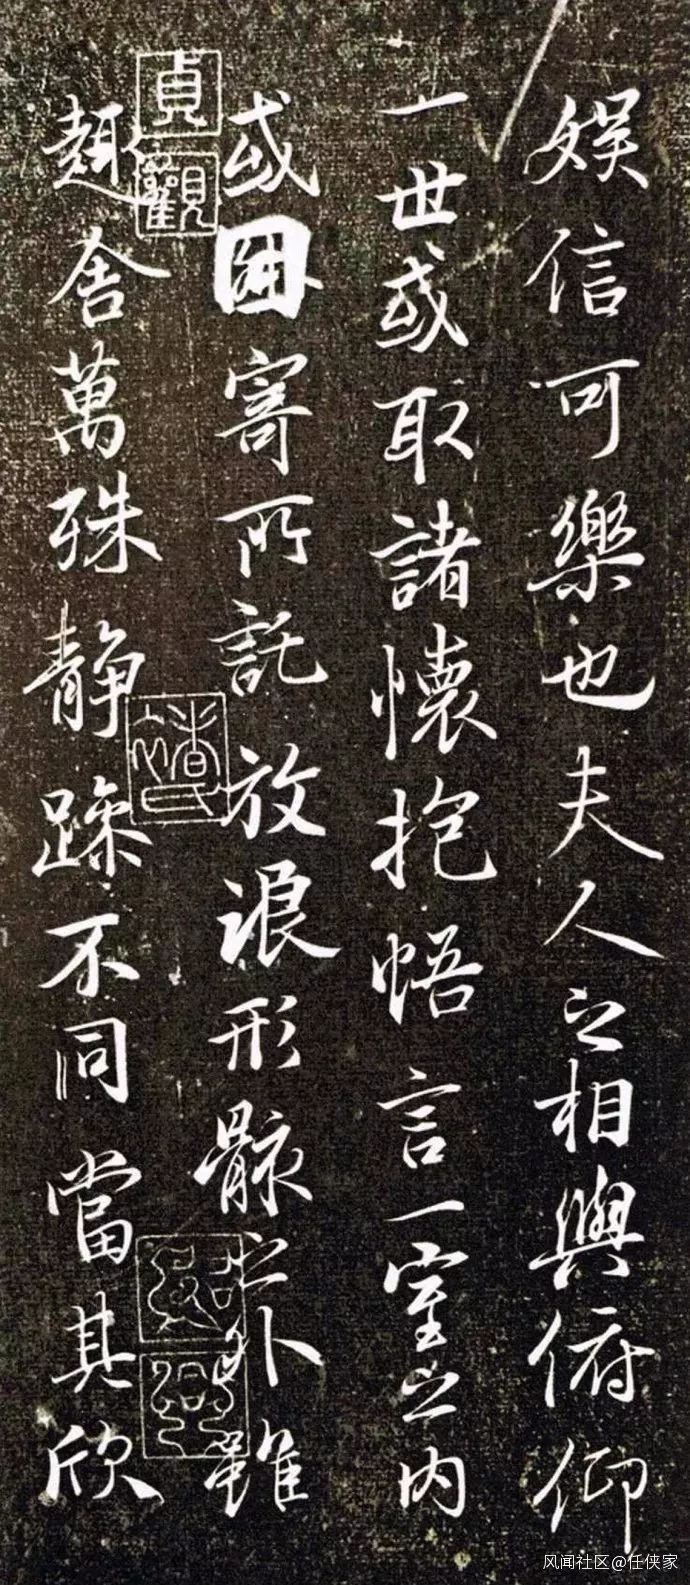 娛信可樂也夫人之相與俯仰
一世或取諸懷抱悟言一室之内
或因寄所託放浪形骸之外雖
趣舍萬殊静躁不同當其欣
貞觀
风闻社区@任侠家